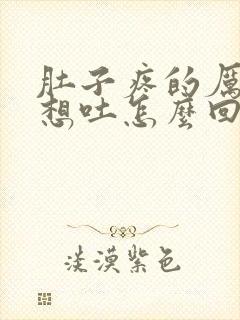 肚子疼的厲
想吐怎麼回
淡漠紫色